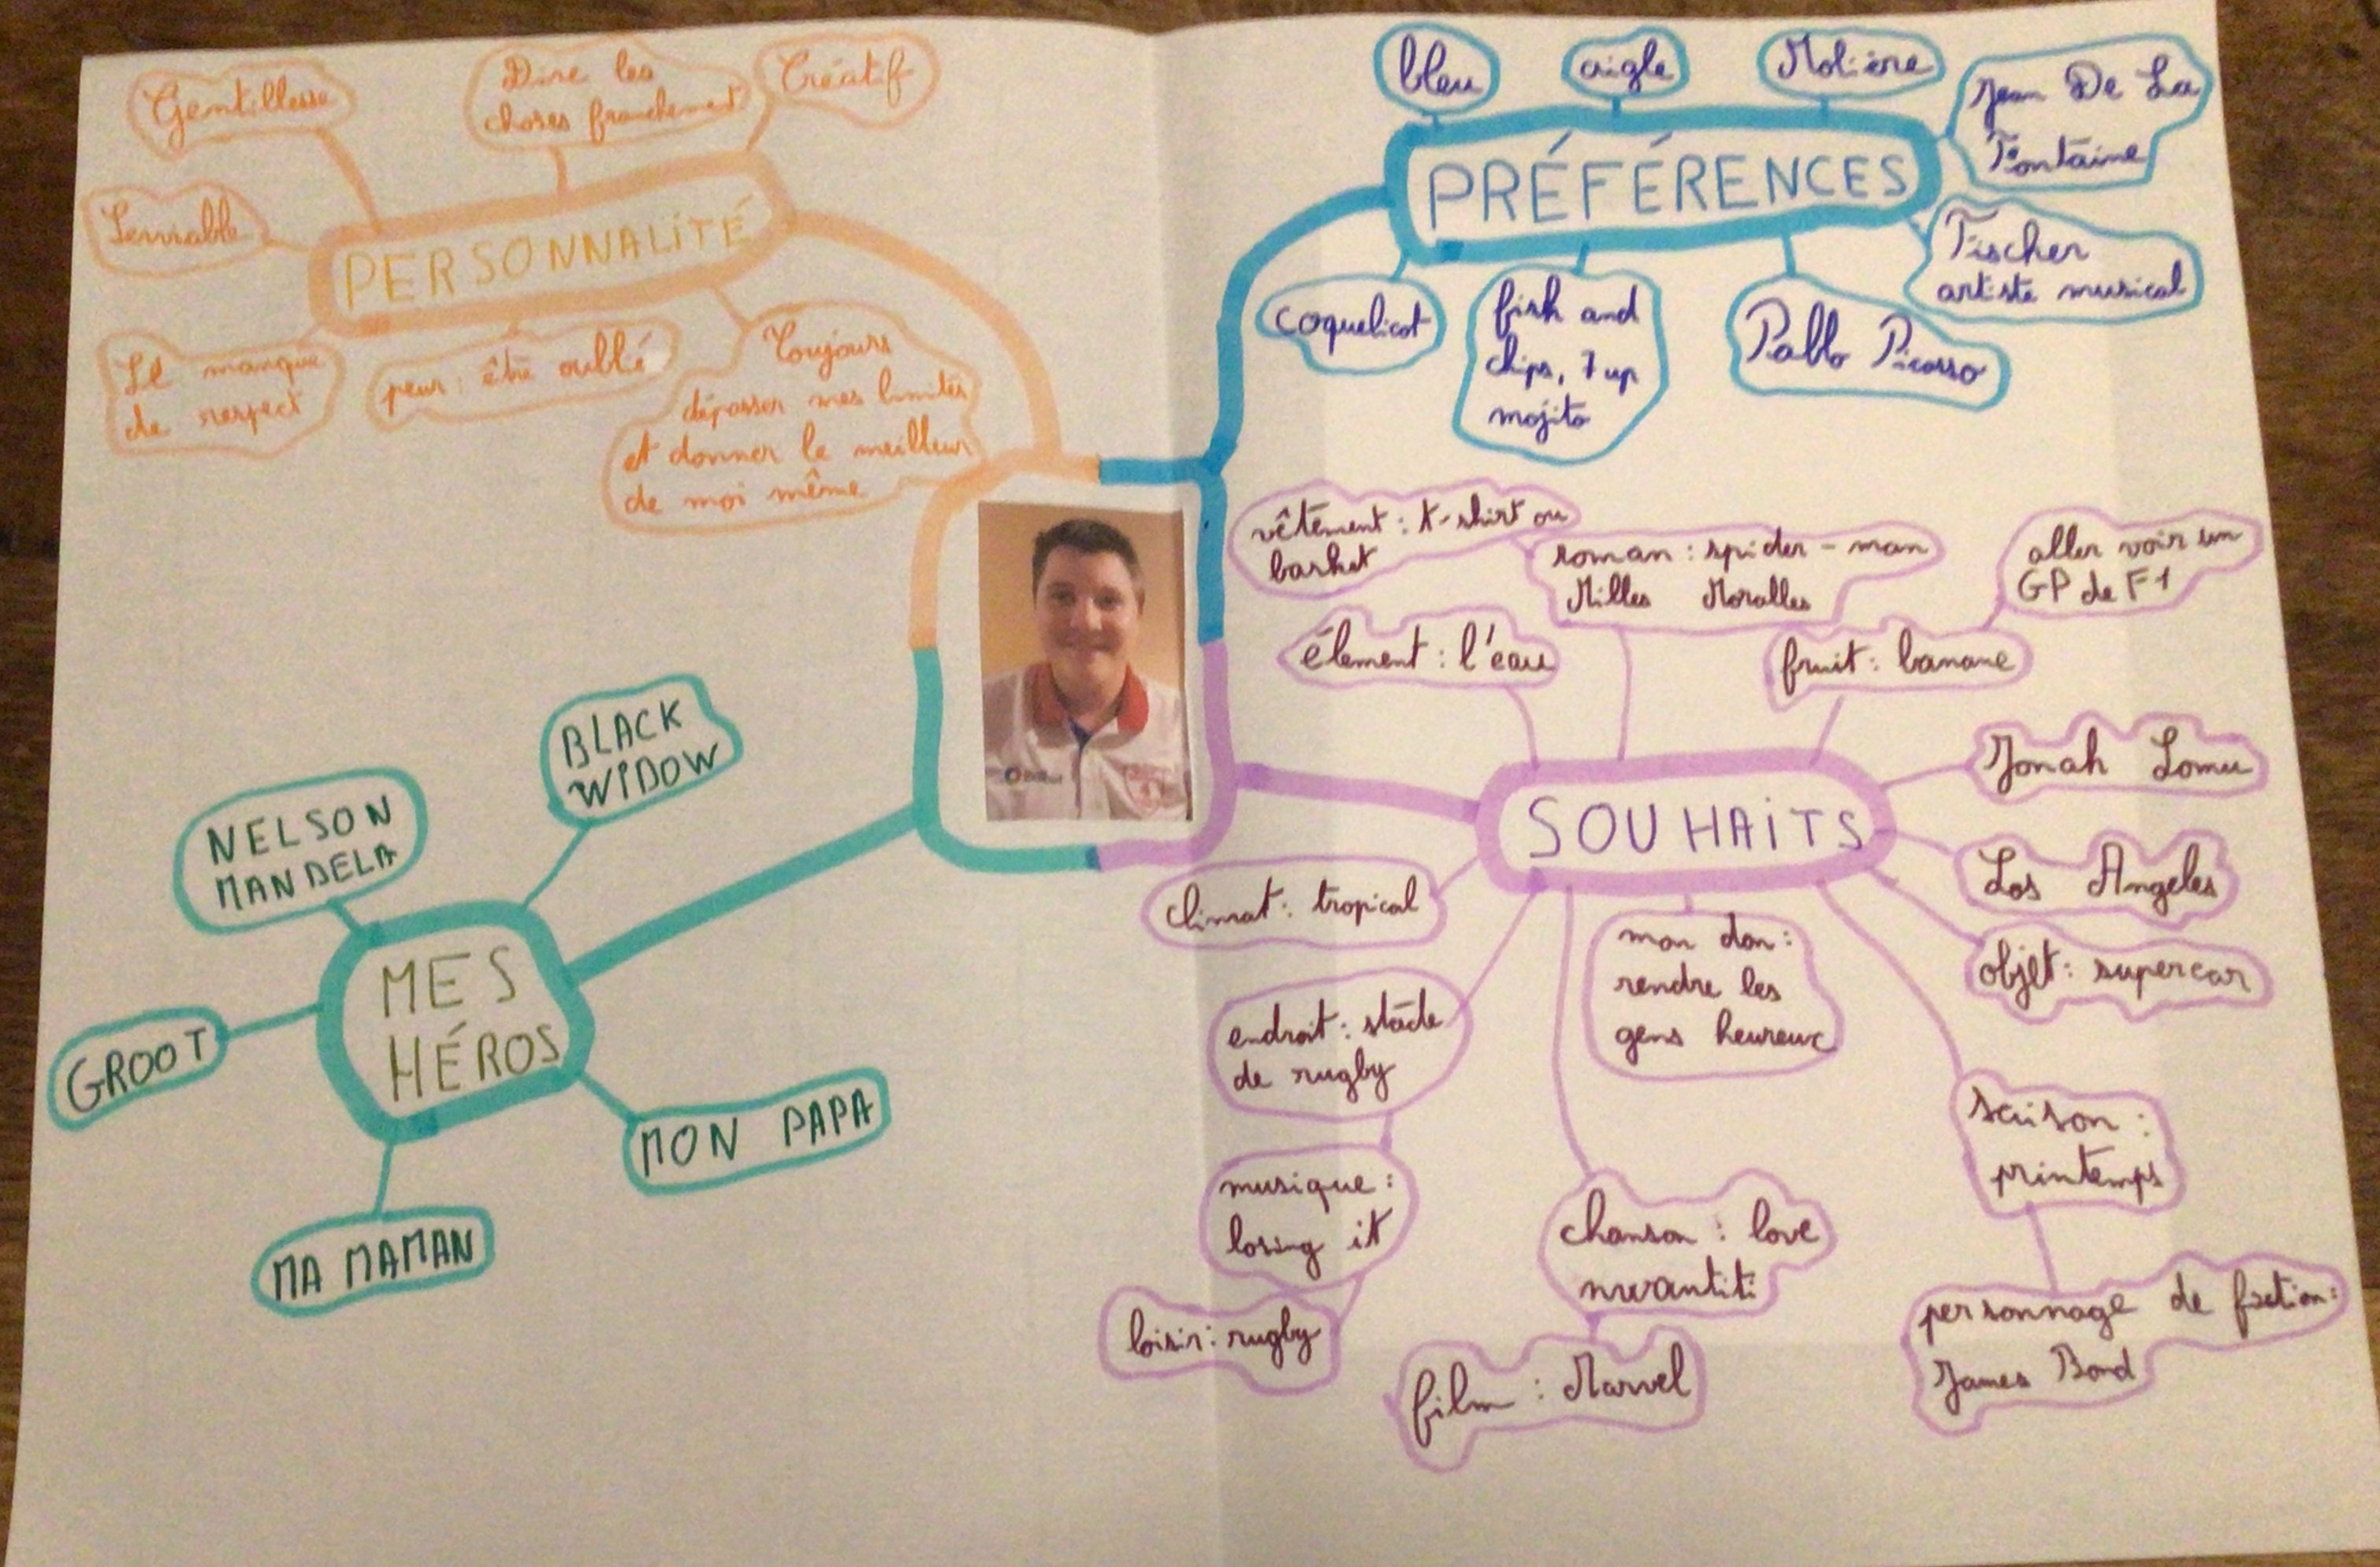 Gentillesse
Dire les
choses franchement
Créatif
Serviable
PERSONNALITÉ
Le manque
de respect
peur : être oublié
Toujours
dépasser mes limites
et donner le meilleur
de moi même
bleu
aigle
Molière
Jean De La
Fontaine
PRÉFÉRENCES
Fischer
artiste musical
coquelicot
fish and
chips, 7 up
mojito
Pablo Picasso
vêtement : t-shirt ou
basket
roman : spider-man
Milles Moralles
aller voir un
GP de F1
élement : l'eau
fruit : banane
Jonah Lomu
SOUHAITS
Los Angeles
climat : tropical
mon don :
rendre les
gens heureux
objet : supercar
endroit : stade
de rugby
saison :
printemps
musique :
losing it
chanson : love
nwantiti
loisir : rugby
film : Marvel
personnage de fiction :
James Bond
BLACK
WIDOW
NELSON
MANDELA
MES
HÉROS
GROOT
MON PAPA
MA MAMAN